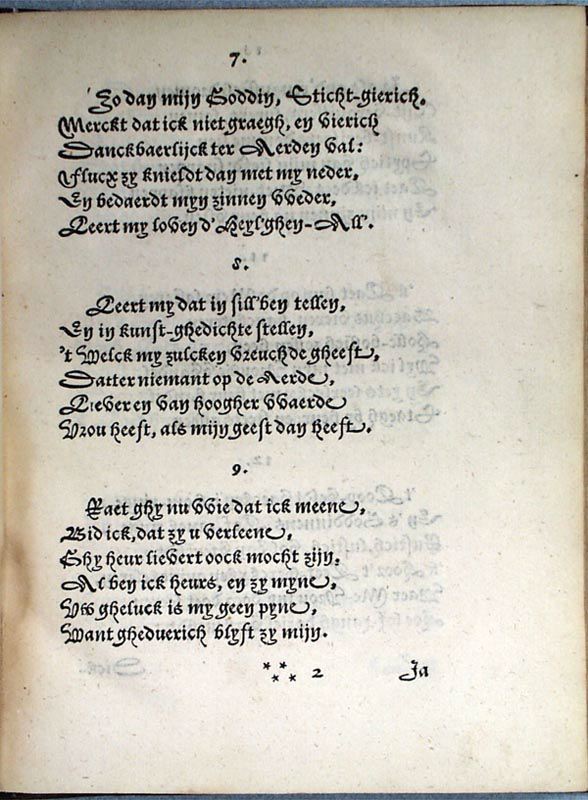 7.
Zo dan mijn Goddin, Sticht-gierich,
Merckt dat ick niet graegh, en vierich
Danckbaerlijck ter Aerden val:
Flucx zy knieldt dan met my neder,
En bedaerdt myn zinnen vveder,
Leert my loven d'Heyl'ghen-All'.
8.
Leert my dat in sill'ben tellen,
En in kunst-ghedichte stellen,
't Welck my zulcken vreuchde gheeft,
Datter niemant op de Aerde,
Liever en van hoogher vvaerde
Vrou heeft, als mijn geest dan heeft.
9.
Raet ghy nu vvie dat ick meene,
Bid ick, dat zy u verleene,
Ghy heur lievert oock mocht zijn.
Al ben ick heurs, en zy myne,
Vvv gheluck is my geen pyne,
Want gheduerich blyft zy mijn.
*** 2 Ja